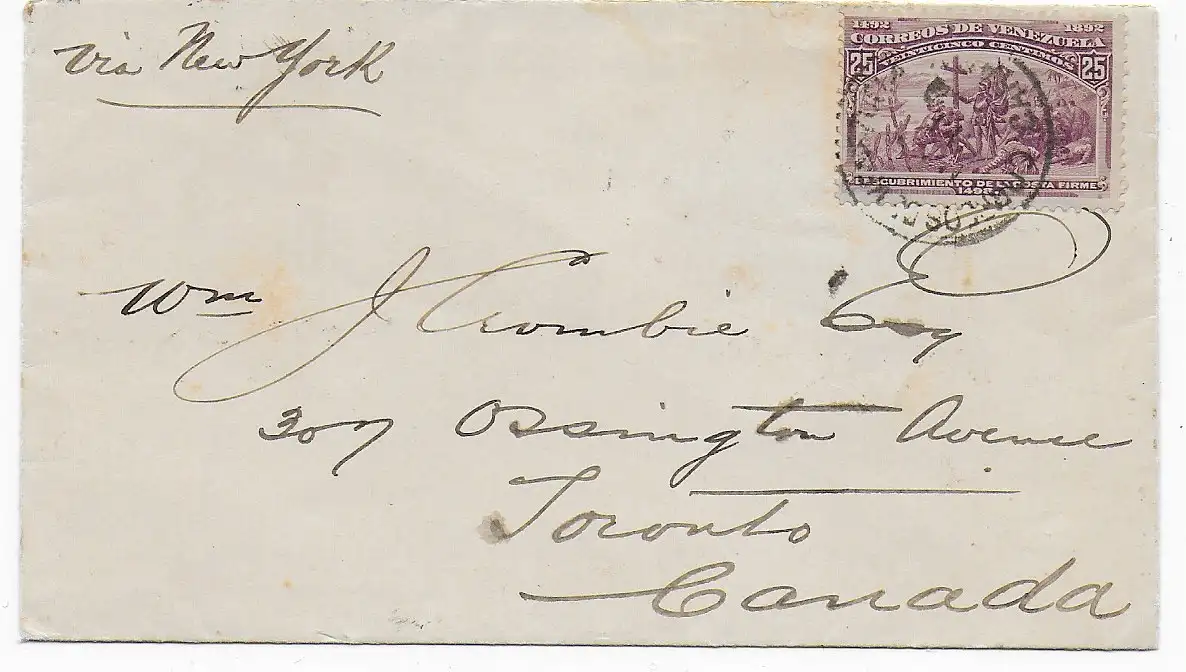 via New York
1492 1492
CORREOS DE VENEZUELA
25 VEINTICINCO CENTIMOS 25
DESCUBRIMIENTO DE LA COSTA FIRME
1498
Wm J Crombie Esq
307 Ossington Avenue
Toronto
Canada